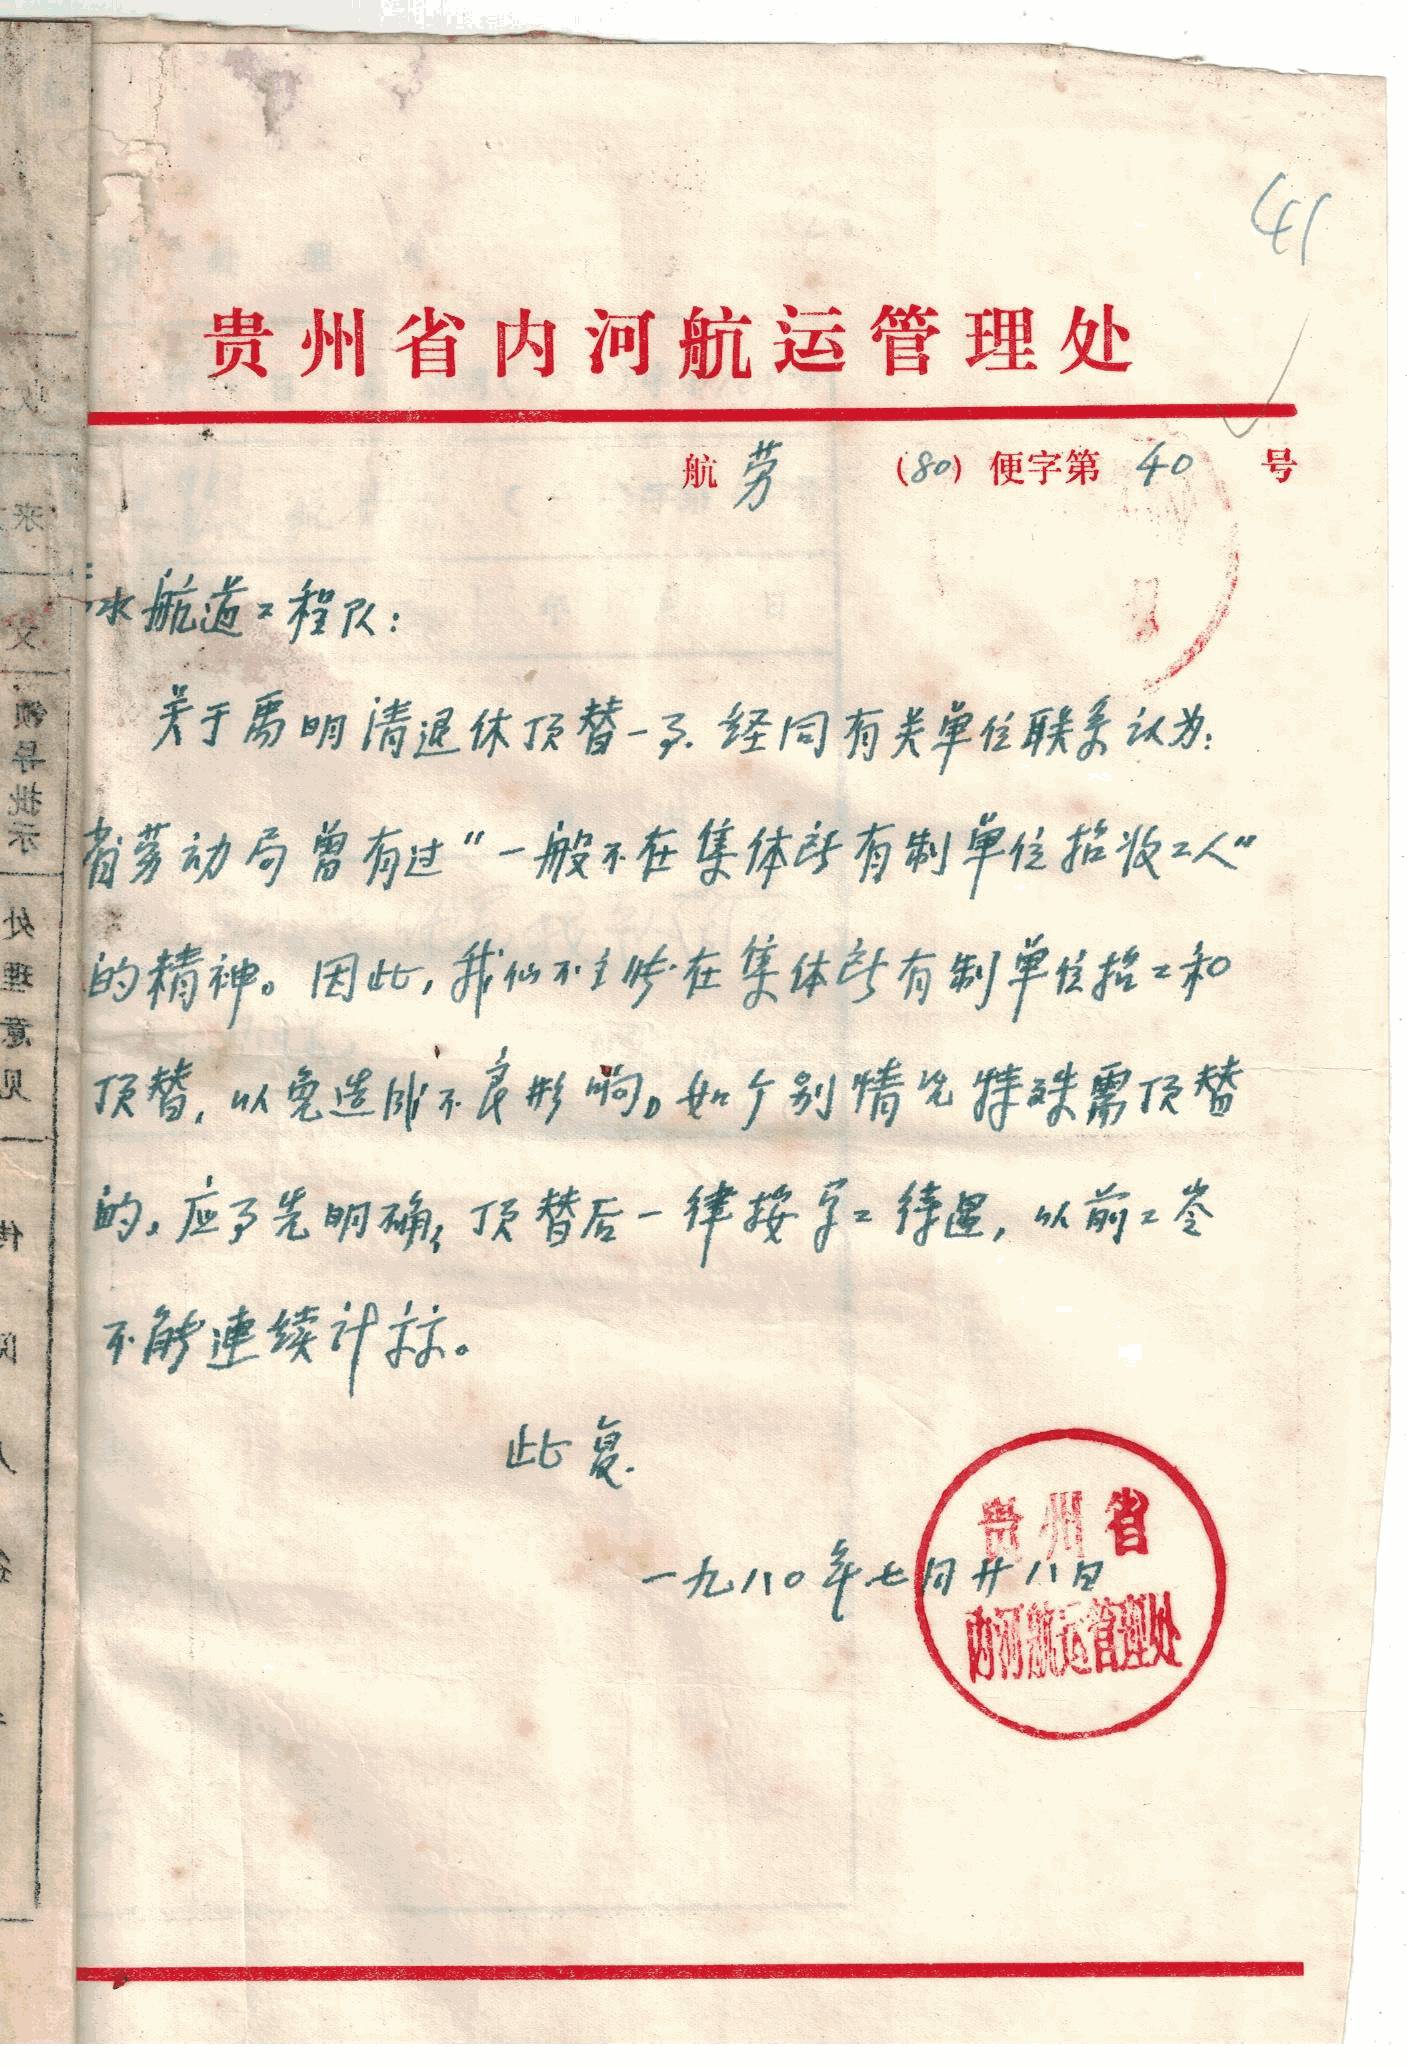 41
贵州省内河航运管理处
航劳(80)便字第40号
水航道工程队：
关于禹明清退休顶替一事.经同有关单位联系认为：
省劳动局曾有过“一般不在集体所有制单位招收工人”
的精神。因此，我们不主张在集体所有制单位招工和
顶替，以免造成不良影响。如个别情况特殊需顶替
的，应予先明确，顶替后一律按学工待遇，以前工令
不能连续计算。
此复.
一九八〇年七月廿八日
贵州省
内河航运管理处
收
来
文
领导批示
处理意见